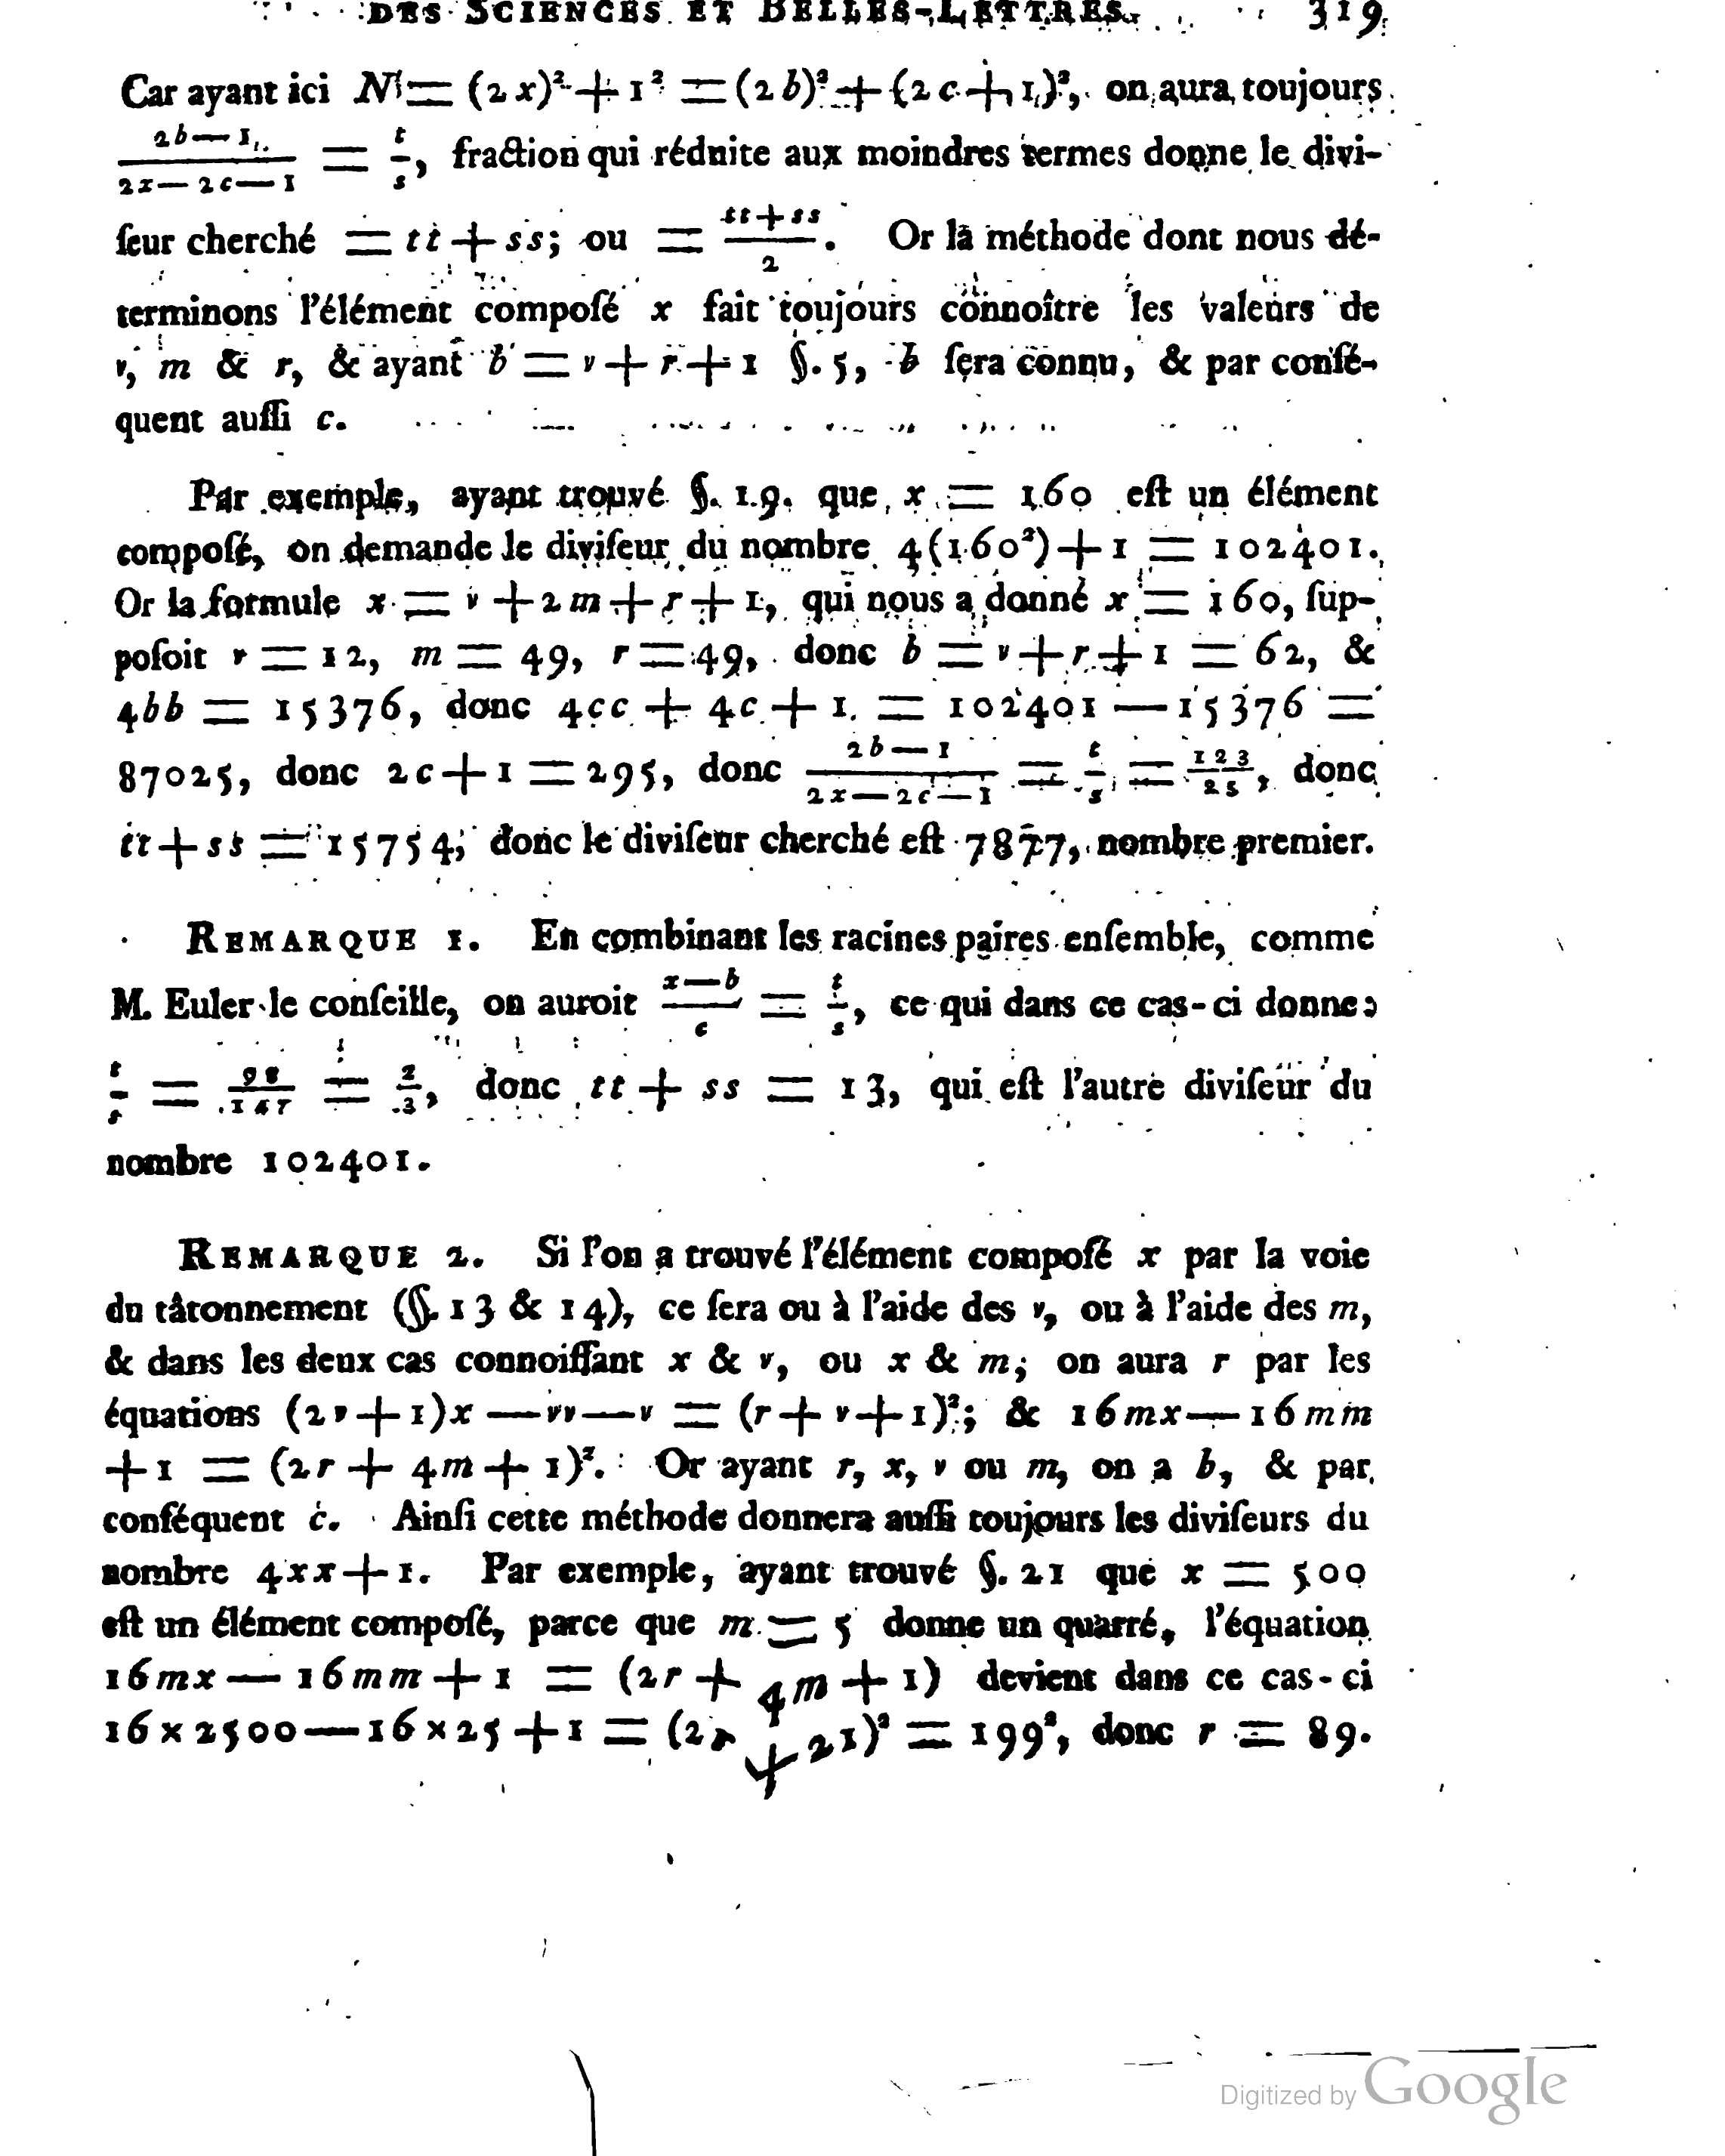 DES SCIENCES ET BELLES-LETTRES. 319
Car ayant ici N = (2x)² + 1² = (2b)² + (2c + 1)², on aura toujours
(2b — 1)/(2x — 2c — 1) = t/s, fraction qui rédnite aux moindres termes donne le divi-
ſeur cherché = tt + ss; ou = (tt + ss)/2. Or la méthode dont nous dé-
terminons l'élément compoſé x fait toujours connoître les valeurs de
v, m & r, & ayant b = v + r + 1 §. 5, b ſera connu, & par conſé-
quent auſſi c.
Par exemple, ayant trouvé §. 19. que x = 160 eſt un élément
compoſé, on demande le diviſeur du nombre 4(160²) + 1 = 102401.
Or la formule x = v + 2m + r + 1, qui nous a donné x = 160, ſup-
poſoit v = 12, m = 49, r = 49, donc b = v + r + 1 = 62, &
4bb = 15376, donc 4cc + 4c + 1 = 102401 — 15376 =
87025, donc 2c + 1 = 295, donc (2b — 1)/(2x — 2c — 1) = t/s = 123/25, donc
tt + ss = 15754; donc le diviſeur cherché eſt 7877, nombre premier.
REMARQUE 1. En combinant les racines paires enſemble, comme
M. Euler le conſeille, on auroit (x — b)/c = t/s, ce qui dans ce cas-ci donne:
t/s = 98/147 = 2/3, donc tt + ss = 13, qui eſt l'autre diviſeur du
nombre 102401.
REMARQUE 2. Si l'on a trouvé l'élément compoſé x par la voie
du tâtonnement (§. 13 & 14), ce ſera ou à l'aide des v, ou à l'aide des m,
& dans les deux cas connoiſſant x & v, ou x & m; on aura r par les
équations (2v + 1)x — vv — v = (r + v + 1)²; & 16mx — 16mm
+ 1 = (2r + 4m + 1)². Or ayant r, x, v ou m, on a b, & par
conſéquent c. Ainſi cette méthode donnera auſſi toujours les diviſeurs du
nombre 4xx + 1. Par exemple, ayant trouvé §. 21 que x = 500
eſt un élément compoſé, parce que m = 5 donne un quarré, l'équation
16mx — 16mm + 1 = (2r + 4m + 1) devient dans ce cas-ci
16 × 2500 — 16 × 25 + 1 = (2r + 21)² = 199², donc r = 89.
Digitized by Google